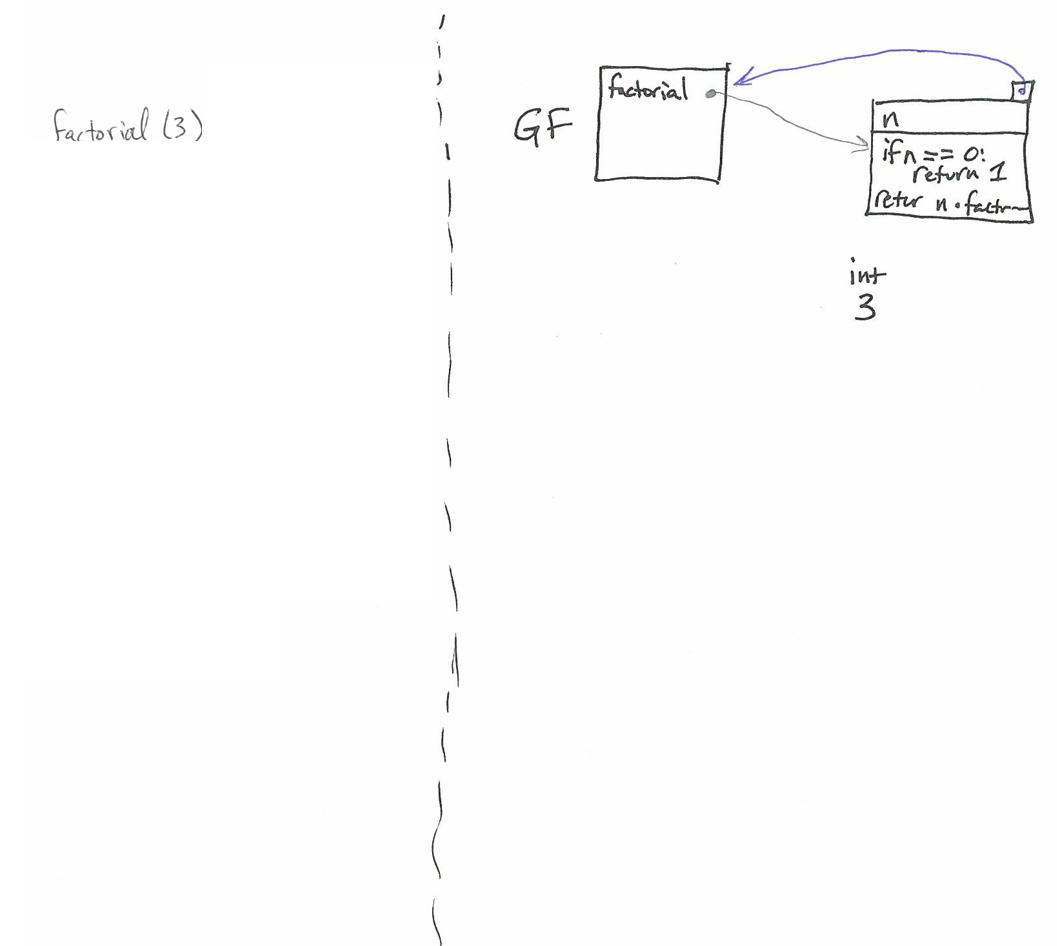 factorial (3)
GF
factorial
n
if n == 0:
return 1
retur n · factr
int
3